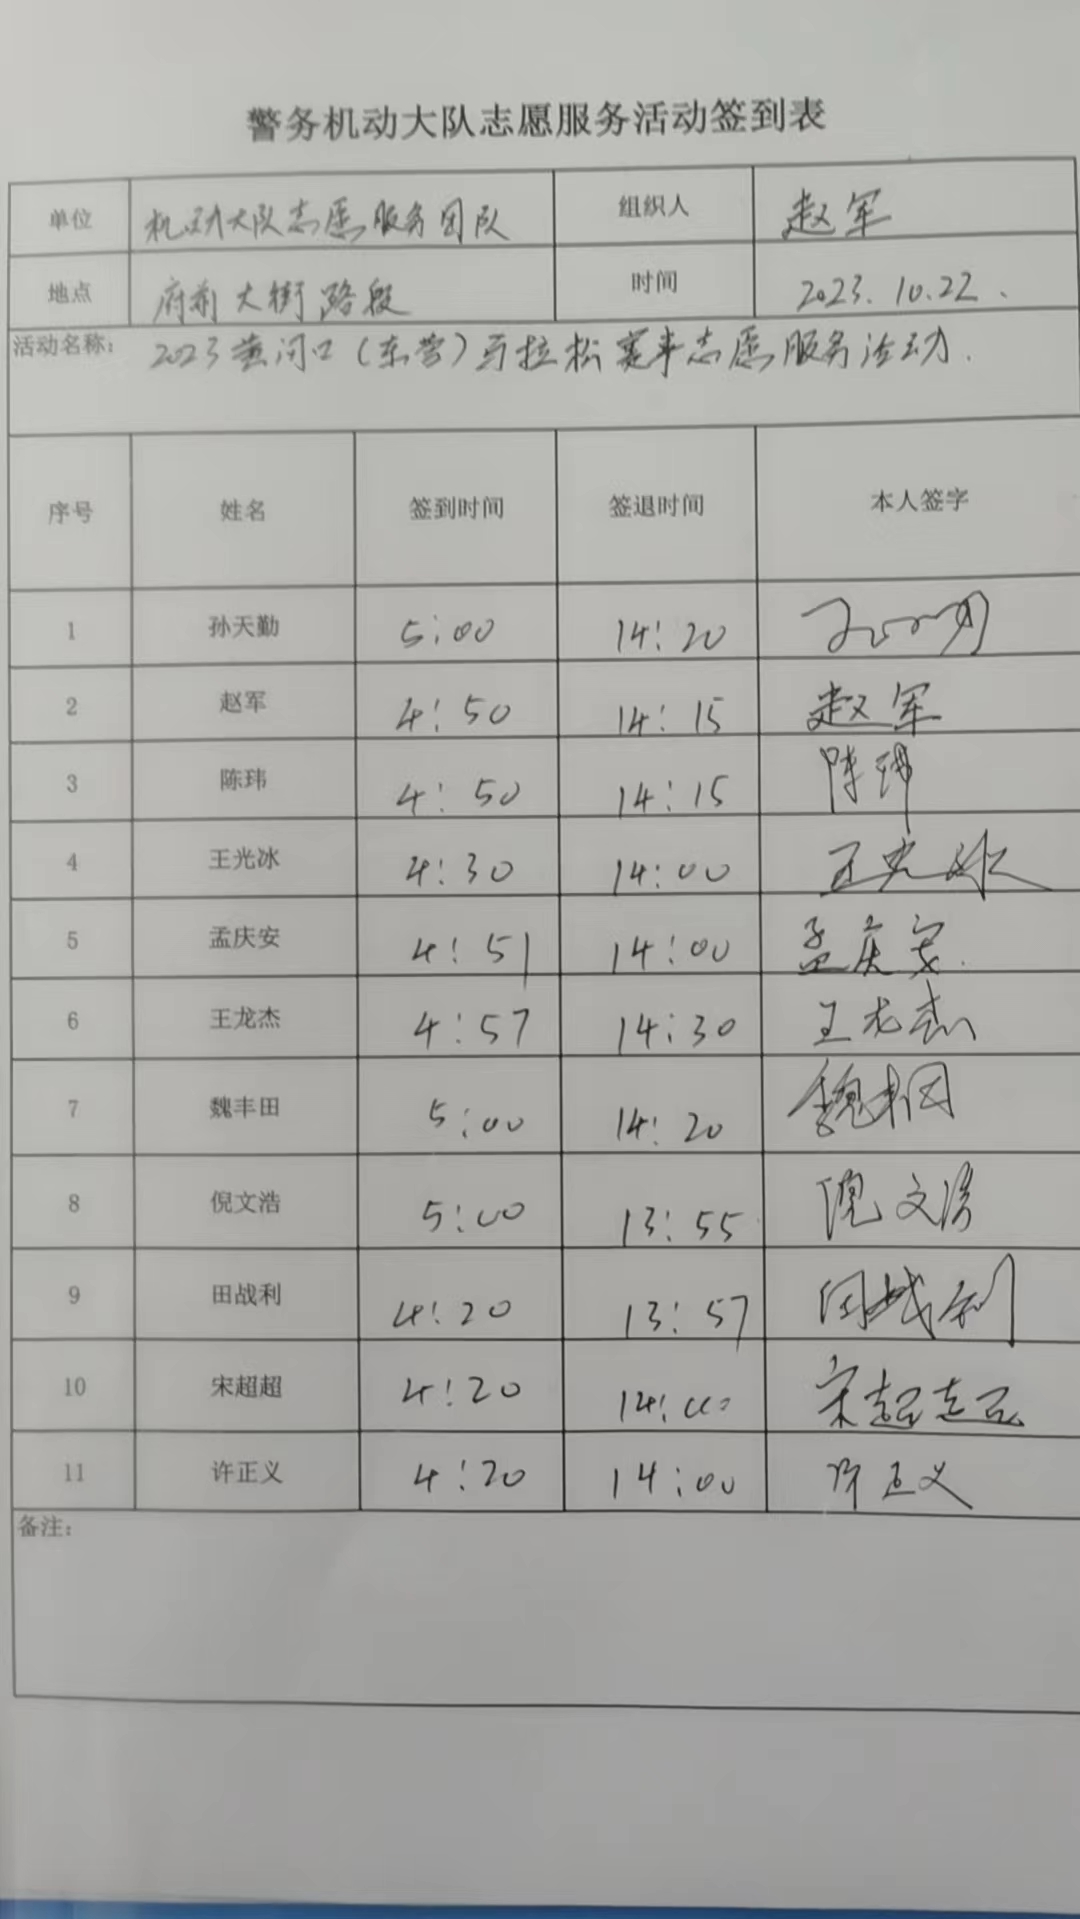 警务机动大队志愿服务活动签到表
单位 机动大队志愿服务团队 组织人 赵军
地点 府前大街路段 时间 2023.10.22.
活动名称: 2023黄河口(东营)马拉松赛事志愿服务活动.
序号 姓名 签到时间 签退时间 本人签字
1 孙天勤 5:00 14:20
2 赵军 4:50 14:15 赵军
3 陈玮 4:50 14:15 陈玮
4 王光冰 4:30 14:00 王光冰
5 孟庆安 4:51 14:00 孟庆安.
6 王龙杰 4:57 14:30 王龙杰
7 魏丰田 5:00 14:20 魏丰田
8 倪文浩 5:00 13:55 倪文浩
9 田战利 4:20 13:57 田战利
10 宋超超 4:20 14:00 宋超超
11 许正义 4:20 14:00 许正义
备注: